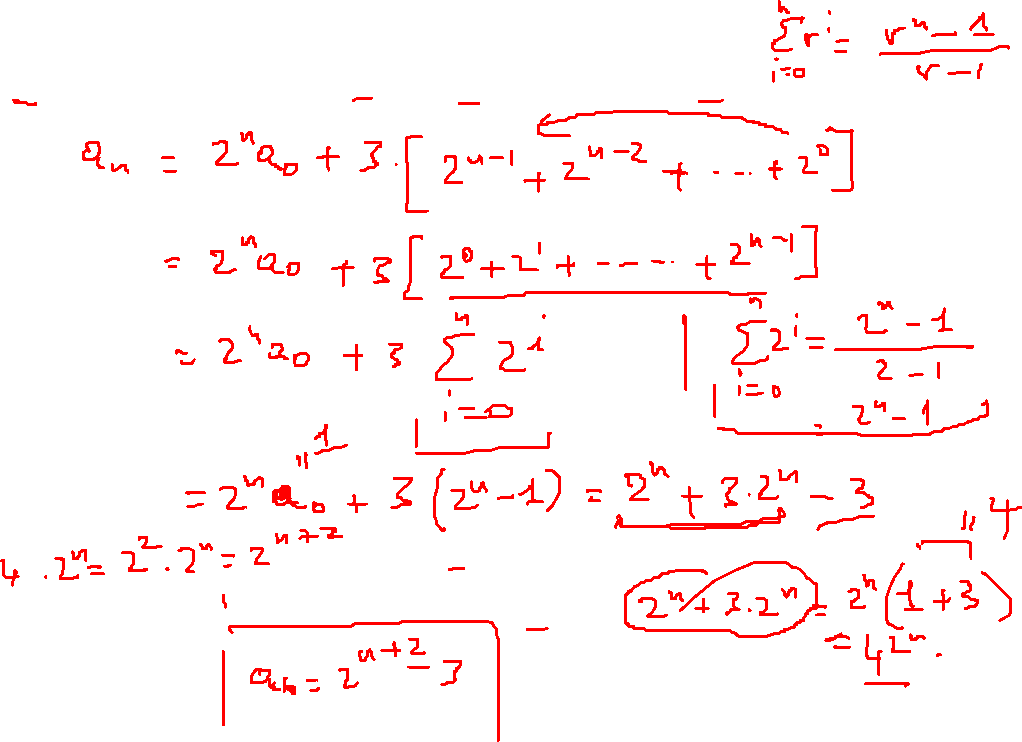 ∑_{i=0}^{n} r^i = (r^n - 1)/(r - 1)
a_n = 2^n a_0 + 3 · [2^{n-1} + 2^{n-2} + ... + 2^0]
= 2^n a_0 + 3 [2^0 + 2^1 + ----- + 2^{n-1}]
= 2^n a_0 + 3 ∑_{i=0}^{n} 2^i | ∑_{i=0}^{n} 2^i = (2^n - 1)/(2 - 1)
2^n - 1
" 1
= 2^n a_0 + 3 (2^n - 1) = 2^n + 3·2^n - 3
4 · 2^n = 2^2 · 2^n = 2^{n+2}
" 4
2^n + 3·2^n = 2^n (1 + 3)
= 4 2^n .
a_n = 2^{n+2} - 3